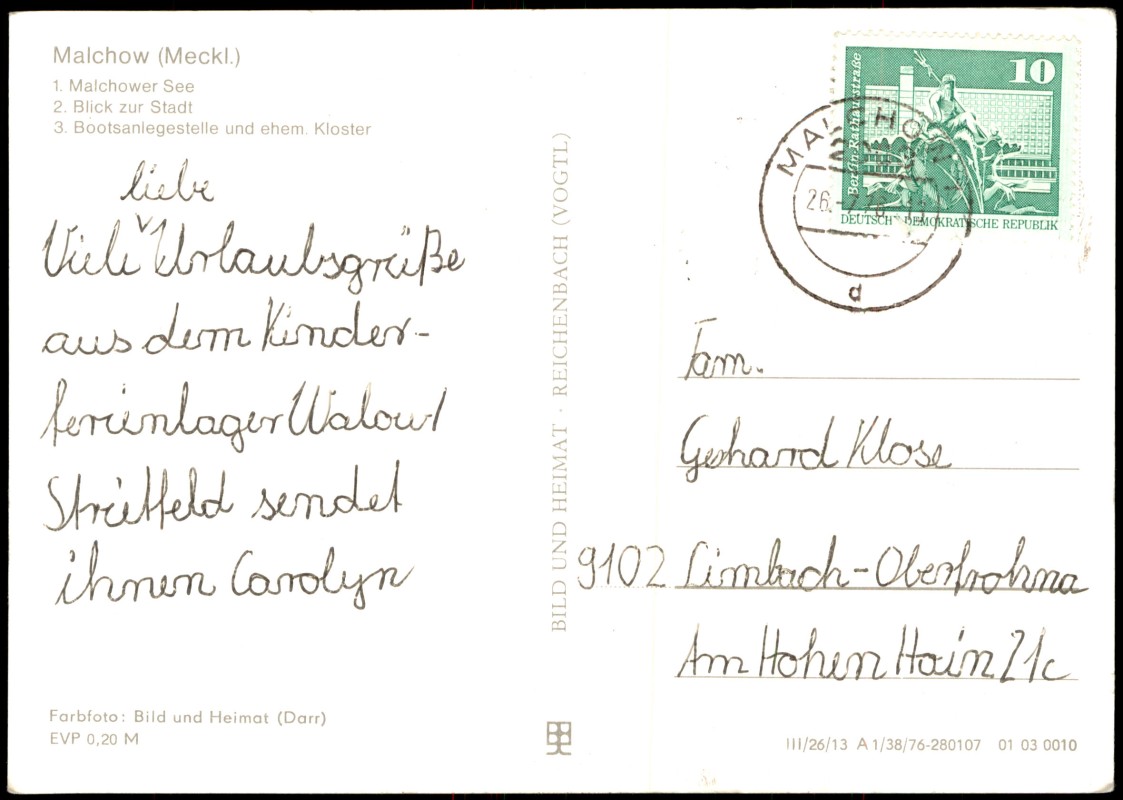 Malchow (Meckl.)
1. Malchower See
2. Blick zur Stadt
3. Bootsanlegestelle und ehem. Kloster
liebe
Viele Urlaubsgrüße
aus dem Kinder-
ferienlager Walow/
Strietfeld sendet
ihnen Carolyn
Farbfoto: Bild und Heimat (Darr)
EVP 0,20 M
BILD UND HEIMAT · REICHENBACH (VOGTL)
10
Berlin-Rathausstraße
DEUTSCHE DEMOKRATISCHE REPUBLIK
MALCHOW
d
Fam.
Gerhard Klose
9102 Limbach-Oberfrohna
Am Hohen Hain 21c
III/26/13 A 1/38/76-280107 01 03 0010